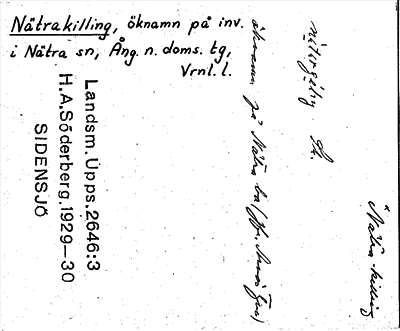 Nätrakilling, öknamn på inv.
i Nätra sn, Ång. n. doms. tg,
Vrnl. l.
Landsm. Upps. 2646:3
H.A. Söderberg. 1929–30
SIDENSJÖ
Nätra-killing
öknamn på Nätra bo